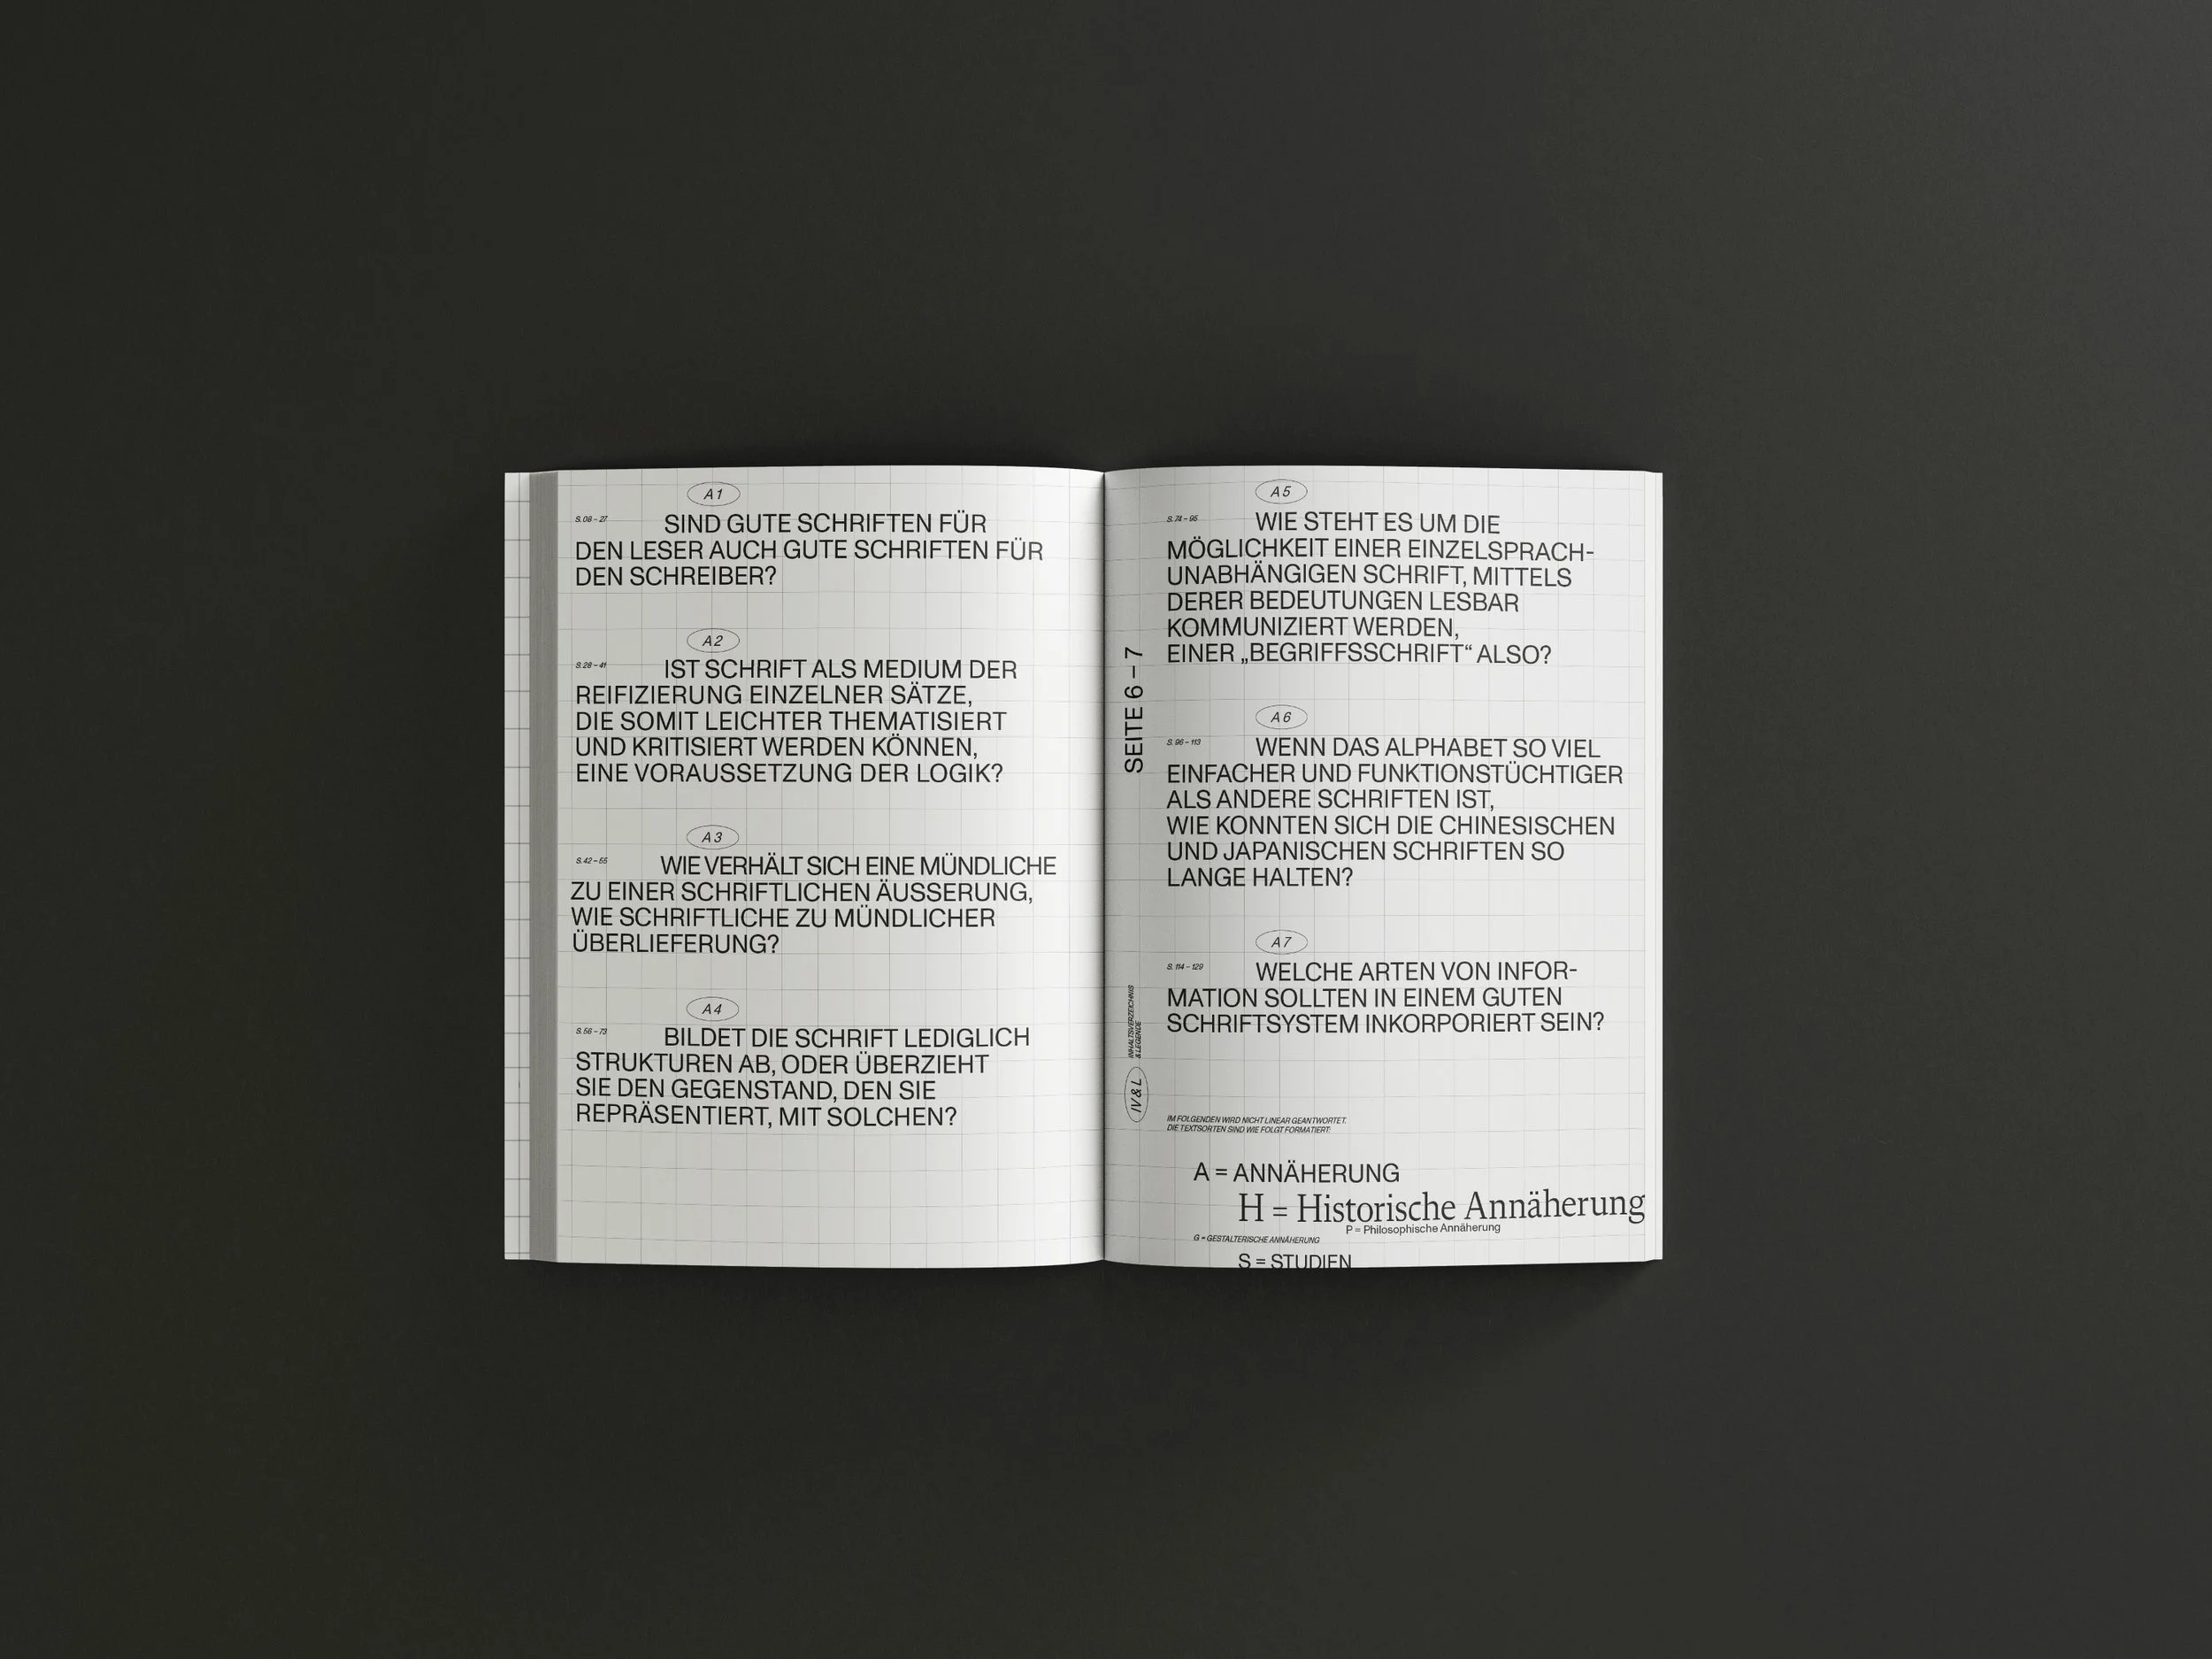 A1
S. 08 – 27
SIND GUTE SCHRIFTEN FÜR
DEN LESER AUCH GUTE SCHRIFTEN FÜR
DEN SCHREIBER?
A2
S. 28 – 41
IST SCHRIFT ALS MEDIUM DER
REIFIZIERUNG EINZELNER SÄTZE,
DIE SOMIT LEICHTER THEMATISIERT
UND KRITISIERT WERDEN KÖNNEN,
EINE VORAUSSETZUNG DER LOGIK?
A3
S. 42 – 55
WIE VERHÄLT SICH EINE MÜNDLICHE
ZU EINER SCHRIFTLICHEN ÄUSSERUNG,
WIE SCHRIFTLICHE ZU MÜNDLICHER
ÜBERLIEFERUNG?
A4
S. 56 – 73
BILDET DIE SCHRIFT LEDIGLICH
STRUKTUREN AB, ODER ÜBERZIEHT
SIE DEN GEGENSTAND, DEN SIE
REPRÄSENTIERT, MIT SOLCHEN?
SEITE 6 – 7
INHALTSVERZEICHNIS
& LEGENDE
IV & L
A5
S. 74 – 95
WIE STEHT ES UM DIE
MÖGLICHKEIT EINER EINZELSPRACH-
UNABHÄNGIGEN SCHRIFT, MITTELS
DERER BEDEUTUNGEN LESBAR
KOMMUNIZIERT WERDEN,
EINER „BEGRIFFSSCHRIFT“ ALSO?
A6
S. 96 – 113
WENN DAS ALPHABET SO VIEL
EINFACHER UND FUNKTIONSTÜCHTIGER
ALS ANDERE SCHRIFTEN IST,
WIE KONNTEN SICH DIE CHINESISCHEN
UND JAPANISCHEN SCHRIFTEN SO
LANGE HALTEN?
A7
S. 114 – 129
WELCHE ARTEN VON INFOR-
MATION SOLLTEN IN EINEM GUTEN
SCHRIFTSYSTEM INKORPORIERT SEIN?
IM FOLGENDEN WIRD NICHT LINEAR GEANTWORTET.
DIE TEXTSORTEN SIND WIE FOLGT FORMATIERT:
A = ANNÄHERUNG
H = Historische Annäherung
P = Philosophische Annäherung
G = GESTALTERISCHE ANNÄHERUNG
S = STUDIEN